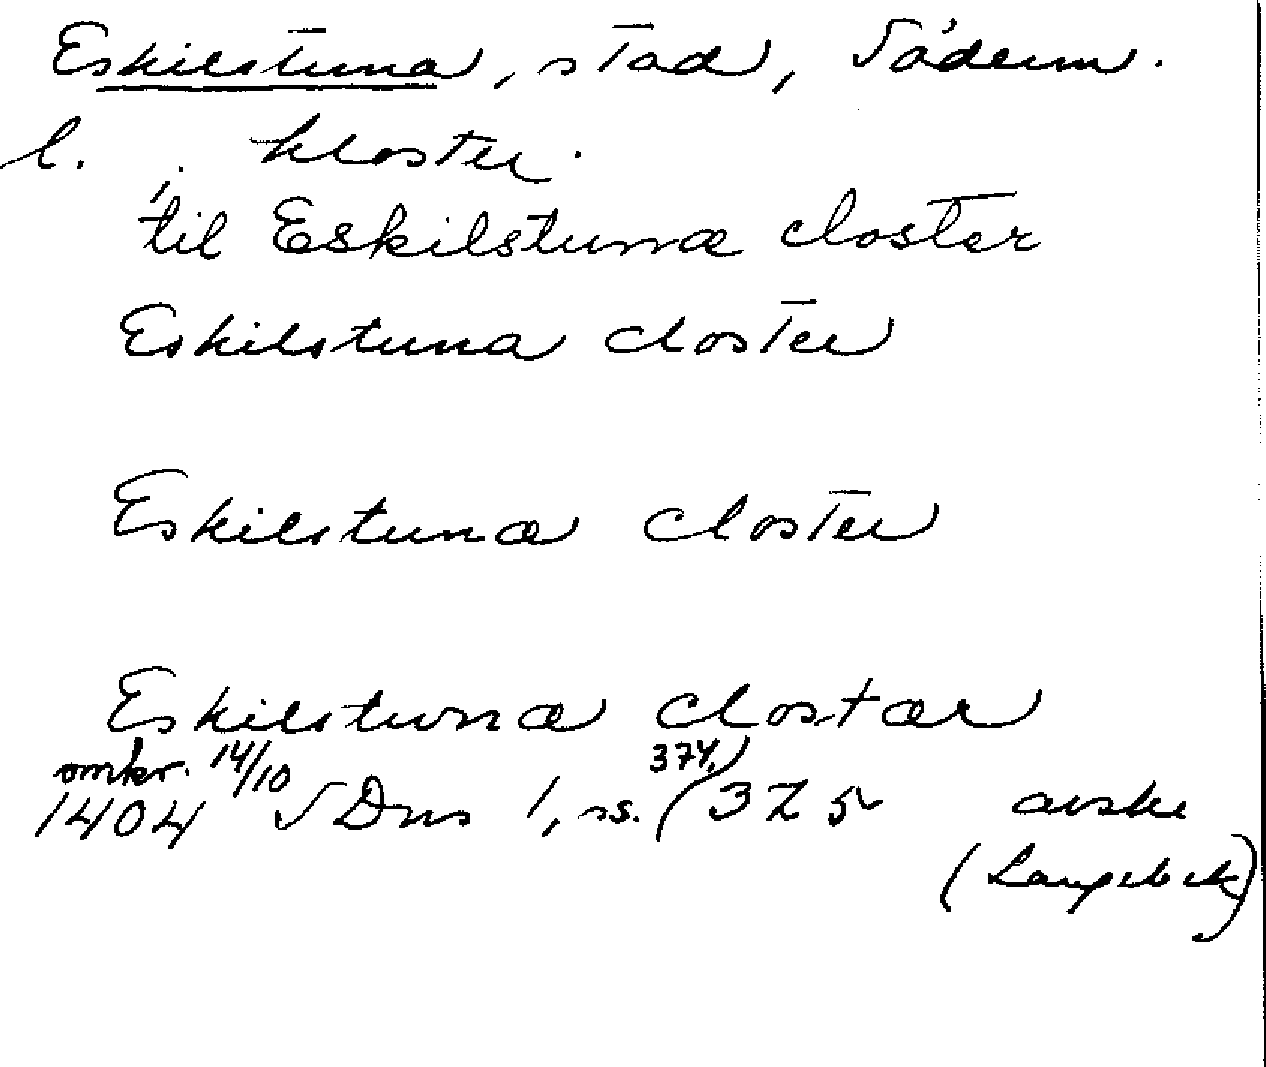 Eskilstuna, stad, Söderm.
l. kloster.
til Eskilstunæ closter
Eskilstuna closter
Eskilstunæ closter
Eskilstunæ clostær
omkr. 14/10 374,
1404 SDns 1, ss. (375 avskr
(Langebek)